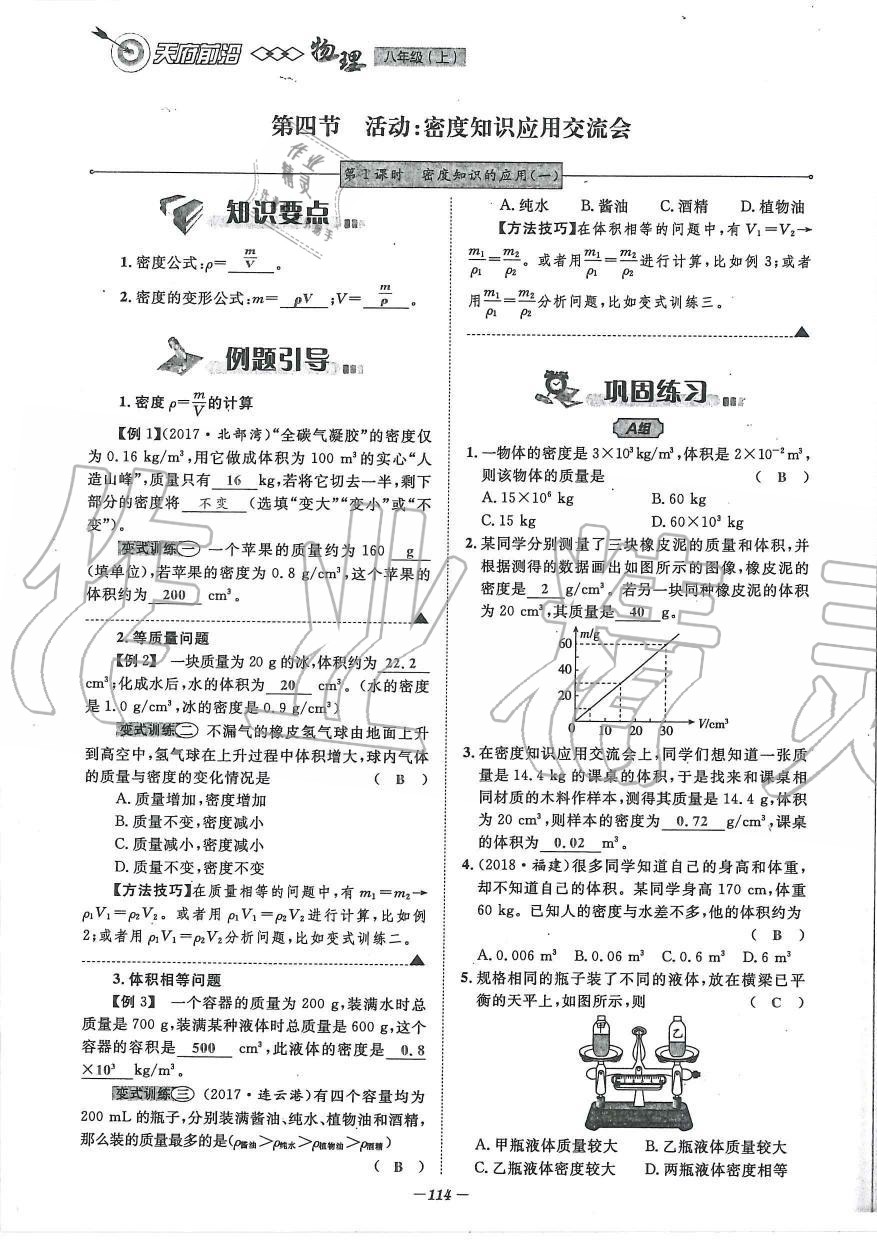 天府前沿 物理 八年级(上)
第四节 活动:密度知识应用交流会
第1课时 密度知识的应用(一)
知识要点
1.密度公式:ρ= m/V 。
2.密度的变形公式:m= ρV ;V= m/ρ 。
例题引导
1.密度 ρ=m/V的计算
【例 1】(2017·北部湾)“全碳气凝胶”的密度仅
为 0.16 kg/m³,用它做成体积为 100 m³的实心“人
造山峰”,质量只有 16 kg,若将它切去一半,剩下
部分的密度将 不变 (选填“变大”“变小”或“不
变”)。
变式训练(一) 一个苹果的质量约为 160 g
(填单位),若苹果的密度为 0.8 g/cm³,这个苹果的
体积约为 200 cm³。
2.等质量问题
【例 2】 一块质量为 20 g 的冰,体积约为 22.2
cm³;化成水后,水的体积为 20 cm³。(水的密度
是 1.0 g/cm³,冰的密度是 0.9 g/cm³)
变式训练(二) 不漏气的橡皮氢气球由地面上升
到高空中,氢气球在上升过程中体积增大,球内气体
的质量与密度的变化情况是 ( B )
A.质量增加,密度增加
B.质量不变,密度减小
C.质量减小,密度减小
D.质量不变,密度不变
【方法技巧】在质量相等的问题中,有 m₁=m₂→
ρ₁V₁=ρ₂V₂。或者用 ρ₁V₁=ρ₂V₂进行计算,比如例
2;或者用 ρ₁V₁=ρ₂V₂分析问题,比如变式训练二。
3.体积相等问题
【例 3】 一个容器的质量为 200 g,装满水时总
质量是 700 g,装满某种液体时总质量是 600 g,这个
容器的容积是 500 cm³,此液体的密度是 0.8
×10³ kg/m³。
变式训练(三) (2017·连云港)有四个容积均为
200 mL 的瓶子,分别装满酱油、纯水、植物油和酒精,
那么装的质量最多的是(ρ酱油>ρ纯水>ρ植物油>ρ酒精)
( B )
A.纯水 B.酱油 C.酒精 D.植物油
【方法技巧】在体积相等的问题中,有 V₁=V₂→
m₁/ρ₁=m₂/ρ₂。或者用m₁/ρ₁=m₂/ρ₂进行计算,比如例 3;或者
用m₁/ρ₁=m₂/ρ₂分析问题,比如变式训练三。
巩固练习
A组
1.一物体的密度是 3×10³kg/m³,体积是 2×10⁻²m³,
则该物体的质量是 ( B )
A.15×10⁶ kg B.60 kg
C.15 kg D.60×10³ kg
2.某同学分别测量了三块橡皮泥的质量和体积,并
根据测得的数据画出如图所示的图像,橡皮泥的
密度是 2 g/cm³。若另一块同种橡皮泥的体积
为 20 cm³,其质量是 40 g。
m/g
60
40
20
0 10 20 30 V/cm³
3.在密度知识应用交流会上,同学们想知道一张质
量是 14.4 kg 的课桌的体积,于是找来和课桌相
同材质的木料作样本,测得其质量是 14.4 g,体积
为 20 cm³,则样本的密度为 0.72 g/cm³,课桌
的体积为 0.02 m³。
4.(2018·福建)很多同学知道自己的身高和体重,
却不知道自己的体积。某同学身高 170 cm,体重
60 kg。已知人的密度与水差不多,他的体积约为
( B )
A.0.006 m³ B.0.06 m³ C.0.6 m³ D.6 m³
5.规格相同的瓶子装了不同的液体,放在横梁已平
衡的天平上,如图所示,则 ( C )
甲 乙
A.甲瓶液体质量较大 B.乙瓶液体质量较大
C.乙瓶液体密度较大 D.两瓶液体密度相等
—114—
作业精灵